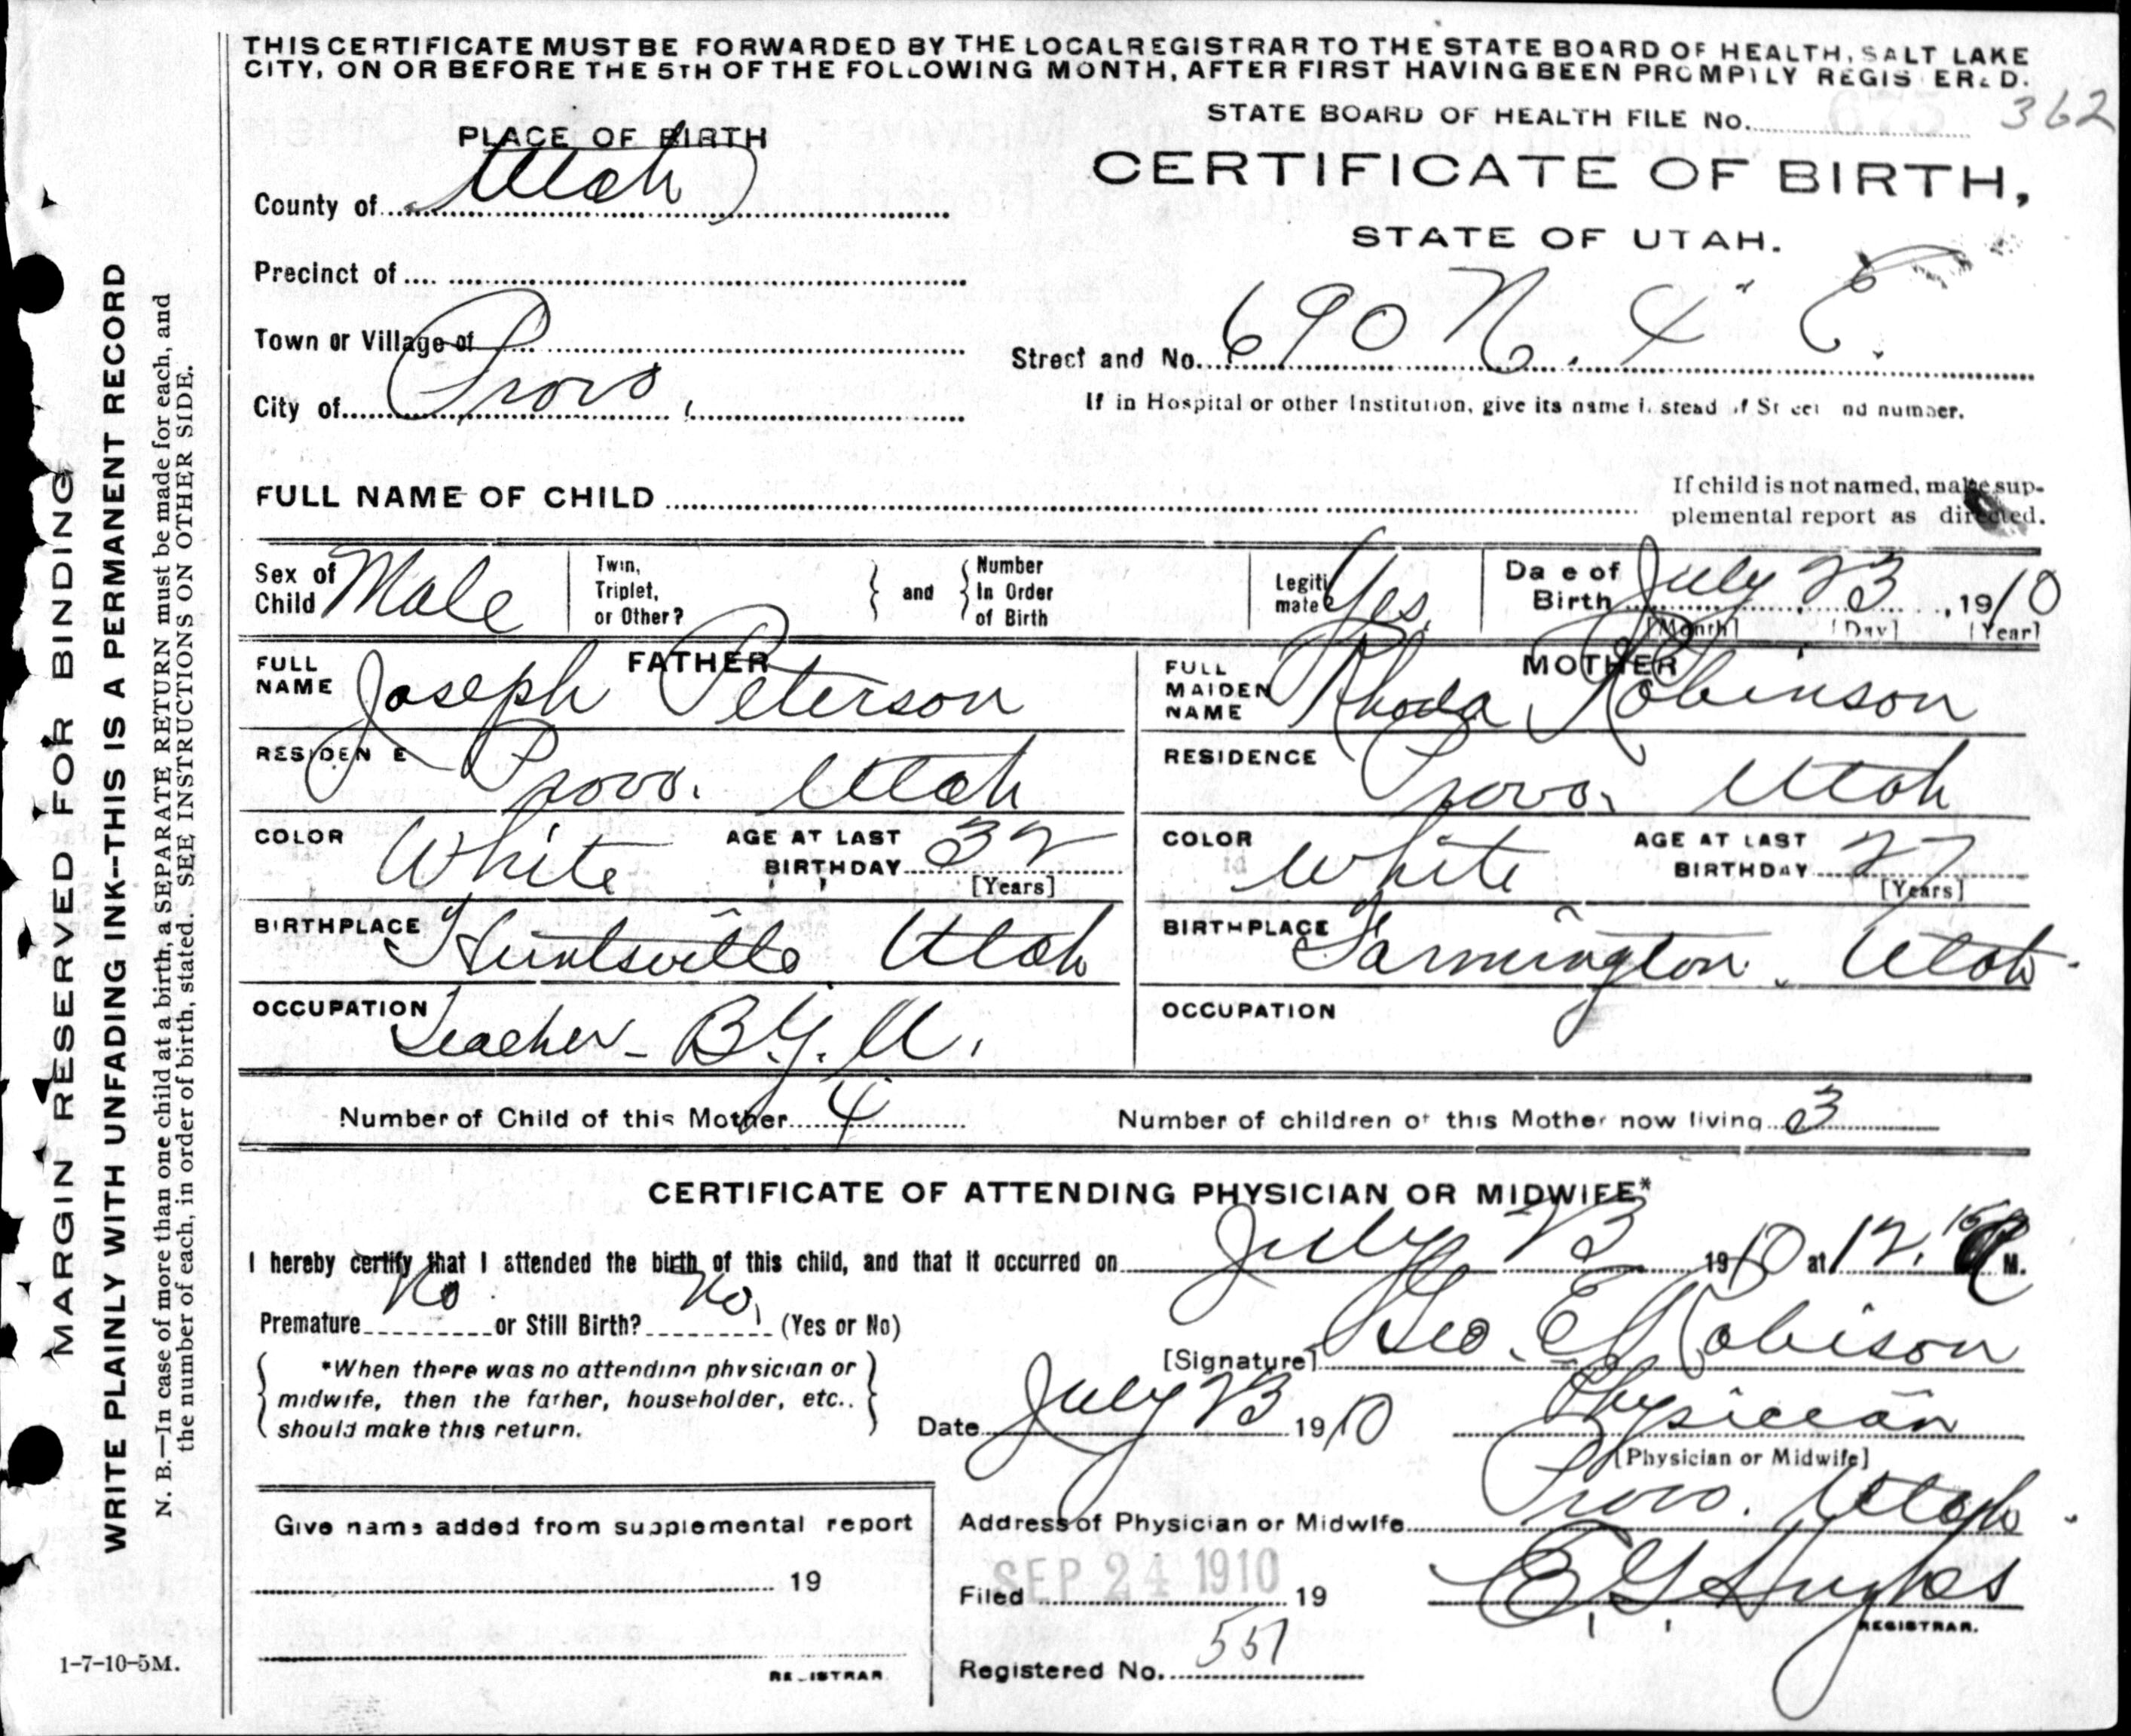 THIS CERTIFICATE MUST BE FORWARDED BY THE LOCAL REGISTRAR TO THE STATE BOARD OF HEALTH, SALT LAKE
CITY, ON OR BEFORE THE 5TH OF THE FOLLOWING MONTH, AFTER FIRST HAVING BEEN PROMPTLY REGIS ER D.
STATE BOARD OF HEALTH FILE No. 362
PLACE OF BIRTH
CERTIFICATE OF BIRTH,
STATE OF UTAH.
County of Utah
Precinct of
Town or Village of
City of Provo
Street and No. 690 N. 4" E.
If in Hospital or other Institution, give its name i stead of St eet nd number.
FULL NAME OF CHILD
If child is not named, make sup-
plemental report as directed.
Sex of Child Male
Twin, Triplet, or Other? and Number In Order of Birth
Legiti mate? Yes.
Da e of Birth July 23, 1910
[Month] [Day] [Year]
FATHER
FULL NAME Joseph Peterson
RESIDEN E Provo. Utah
COLOR White AGE AT LAST BIRTHDAY 32 [Years]
BIRTHPLACE Huntsville Utah
OCCUPATION Teacher - B.Y.U.
MOTHER
FULL MAIDEN NAME Rhoda Robinson
RESIDENCE Provo, Utah
COLOR White AGE AT LAST BIRTHDAY 27 [Years]
BIRTHPLACE Farmington, Utah.
OCCUPATION
Number of Child of this Mother 4 Number of children of this Mother now living 3
CERTIFICATE OF ATTENDING PHYSICIAN OR MIDWIFE*
I hereby certify that I attended the birth of this child, and that it occurred on July 23 1910 at 12.15 M.
Premature No or Still Birth? No. (Yes or No)
[Signature] Geo. E Robison
*When there was no attending physician or
midwife, then the father, householder, etc..
should make this return.
Date July 23 1910 Physician
[Physician or Midwife]
Address of Physician or Midwife Provo. Utah.
Give name added from supplemental report
19
RE ISTRAR
Filed SEP 24 1910 19 E G Hughes
REGISTRAR.
Registered No. 551
MARGIN RESERVED FOR BINDING
WRITE PLAINLY WITH UNFADING INK--THIS IS A PERMANENT RECORD
N. B.—In case of more than one child at a birth, a SEPARATE RETURN must be made for each, and
the number of each, in order of birth, stated. SEE INSTRUCTIONS ON OTHER SIDE.
1-7-10-5M.